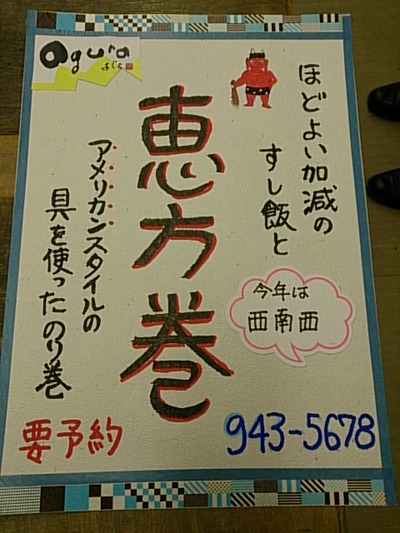 agura
あぐら
ほどよい加減の
すし飯と
恵方巻
アメリカンスタイルの
具を使ったのり巻
今年は
西南西
要予約
943-5678